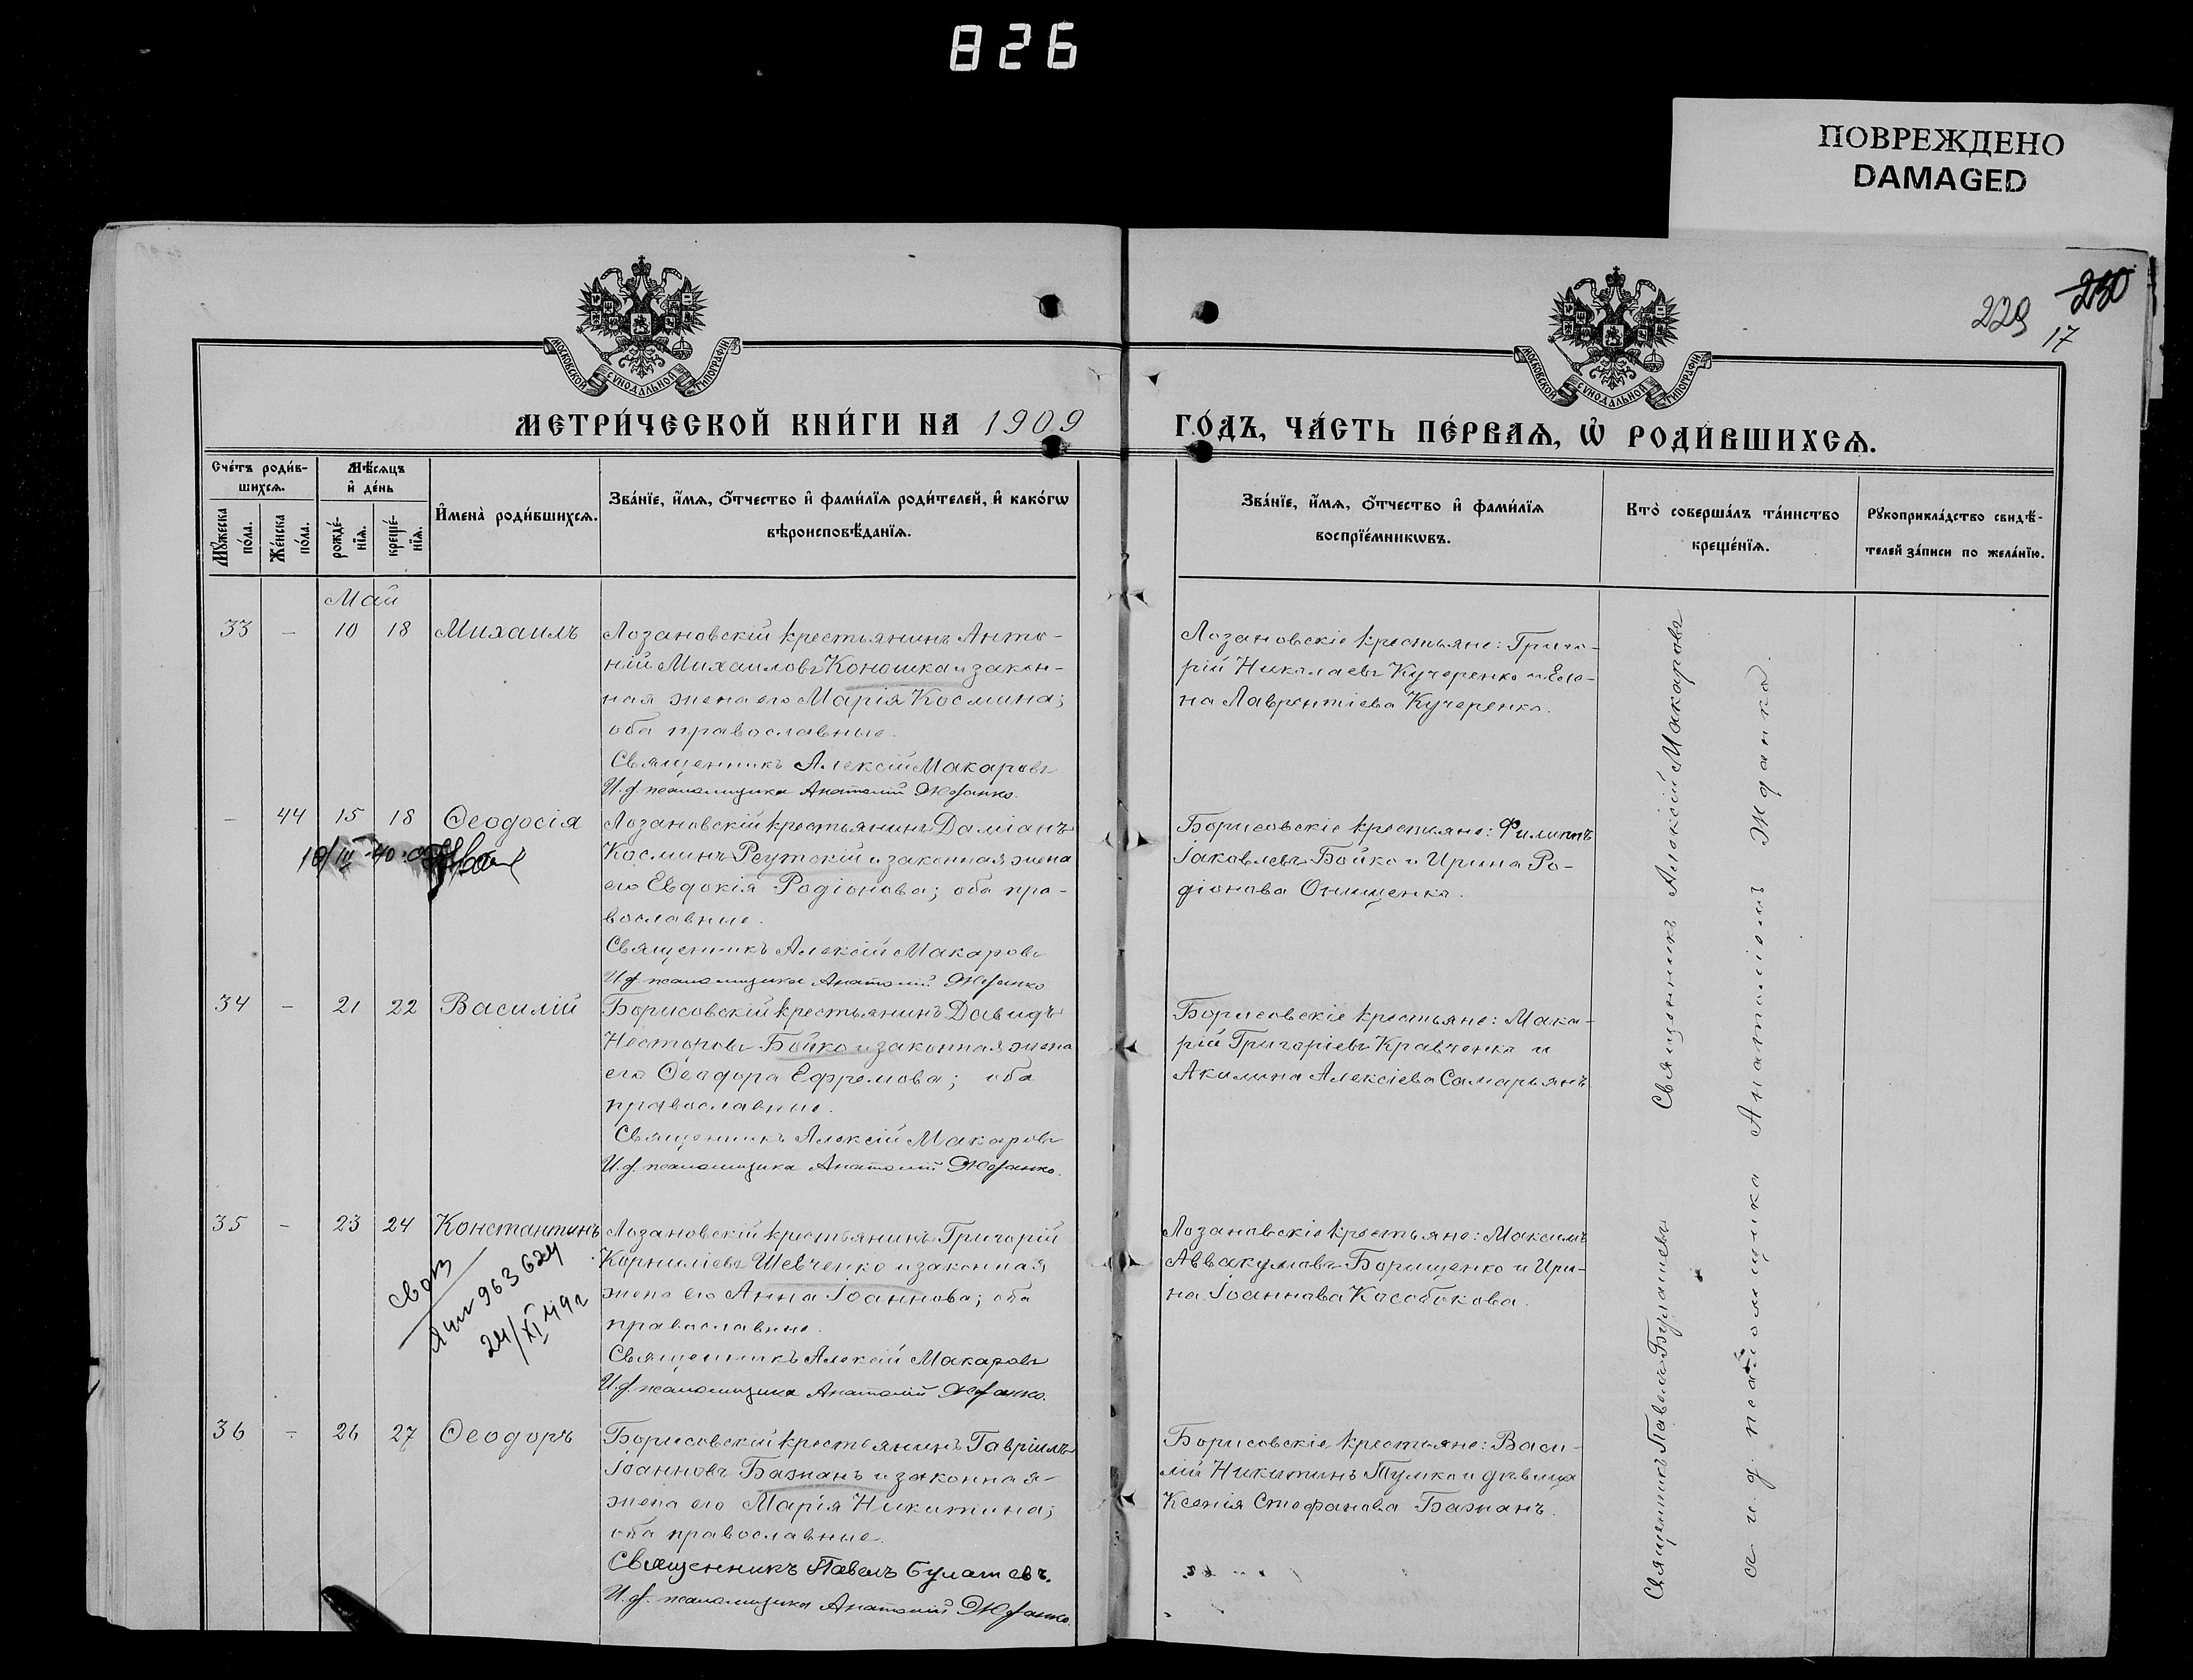 826
ПОВРЕЖДЕНО
DAMAGED
229 230
17
МОСКОВСКОЙ СѴНОДАЛЬНОЙ ТИПОГРАФІИ
МОСКОВСКОЙ СѴНОДАЛЬНОЙ ТИПОГРАФІИ
МЕТРИ́ЧЕСКОЙ КНИ́ГИ НА 1909
ГО́ДЪ, ЧА́СТЬ ПЕ́РВАѦ, Ѽ РОДИ́ВШИХСѦ.
Сче́тъ роди́в-
шихсѧ.
Мꙋ́жеска по́ла.
Же́нска по́ла.
Мѣ́сѧцъ
и҆ де́нь
рожде́-
нїѧ.
креще́-
нїѧ.
И҆мена̀ роди́вшихсѧ.
Зва́нїе, и҆́мѧ, ѻ҆́тчество и҆ фами́лїѧ роди́телей, и҆ како́гѡ
вѣроисповѣ́данїѧ.
Зва́нїе, и҆́мѧ, ѻ҆́тчество и҆ фами́лїѧ
воспрїе́мникѡвъ.
Кто̀ соверша́лъ та́инство
креще́нїѧ.
Рꙋкоприкла́дство свидѣ́-
телей за́писи по жела́нїю.
Май
33 - 10 18 Михаилъ
Лозановскій крестьянинъ Анто-
ній Михаиловъ Коношка и закон-
ная жена его Марія Космина;
оба православные.
Священникъ Алексій Макаровъ
И.д. псаломщика Анатолій Жданко.
Лозановскіе крестьяне: Григо-
рій Николаевъ Кучеренко и Еле-
на Лаврентіева Кучеренко.
- 44 15 18 Ѳеодосія
18/III-40
Лозановскій крестьянинъ Даміанъ
Косминъ Реутскій и законная жена
его Евдокія Родіонова; оба пра-
вославные.
Священникъ Алексій Макаровъ
И.д. псаломщика Анатолій Жданко
Борисовскіе крестьяне: Филиппъ
Іаковлевъ Бойко и Ирина Ро-
діонова Онищенко.
34 - 21 22 Василій
Борисовскій крестьянинъ Давидъ
Несторовъ Бойко и законная жена
его Ѳеодора Ефремова; оба
православные.
Священникъ Алексій Макаровъ
И.д. псаломщика Анатолій Жданко.
Борисовскіе крестьяне: Мака-
рій Григоріевъ Кравченко и
Акилина Алексіева Самарьянъ
35 - 23 24 Константинъ
963624
24/XI 49г
Лозановскій крестьянинъ Григорій
Корниліевъ Шевченко и законная
жена его Анна Іоаннова; оба
православные.
Священникъ Алексій Макаровъ
И.д. псаломщика Анатолій Жданко.
Лозановскіе крестьяне: Максимъ
Аввакумовъ Борищенко и Ири-
на Іоаннова Кособокова.
36 - 26 27 Ѳеодоръ
Борисовскій крестьянинъ Гавріилъ
Іоанновъ Бажанъ и законная
жена его Марія Никитина;
оба православные.
Священникъ Павелъ Булашевъ.
И.д. псаломщика Анатолій Жданко.
Борисовскіе крестьяне: Васи-
лій Никитинъ Тулка и дѣвица
Ксенія Стефанова Бажанъ.
Священникъ Алексій Макаровъ
Священникъ Павелъ Булашевъ
а и.д. псаломщика Анатоліемъ Жданко.